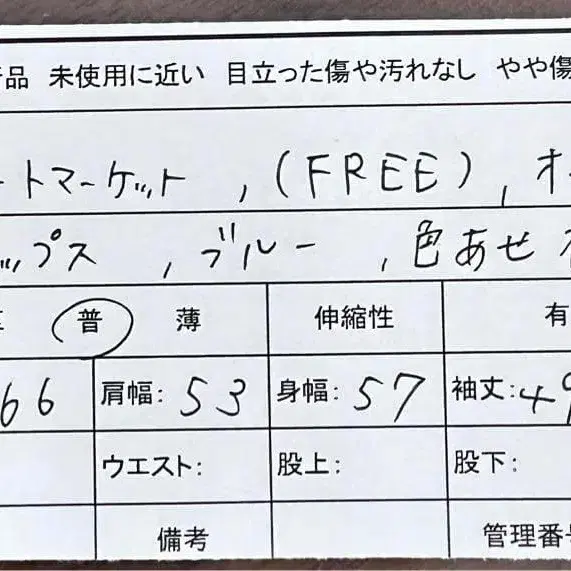 品 未使用に近い 目立った傷や汚れなし やや傷
ートマーケット , (FREE) , オ
ップス , ブルー , 色あせ
普 薄 伸縮性 有
66 肩幅: 53 身幅: 57 袖丈: 49
ウエスト: 股上: 股下:
備考 管理番号